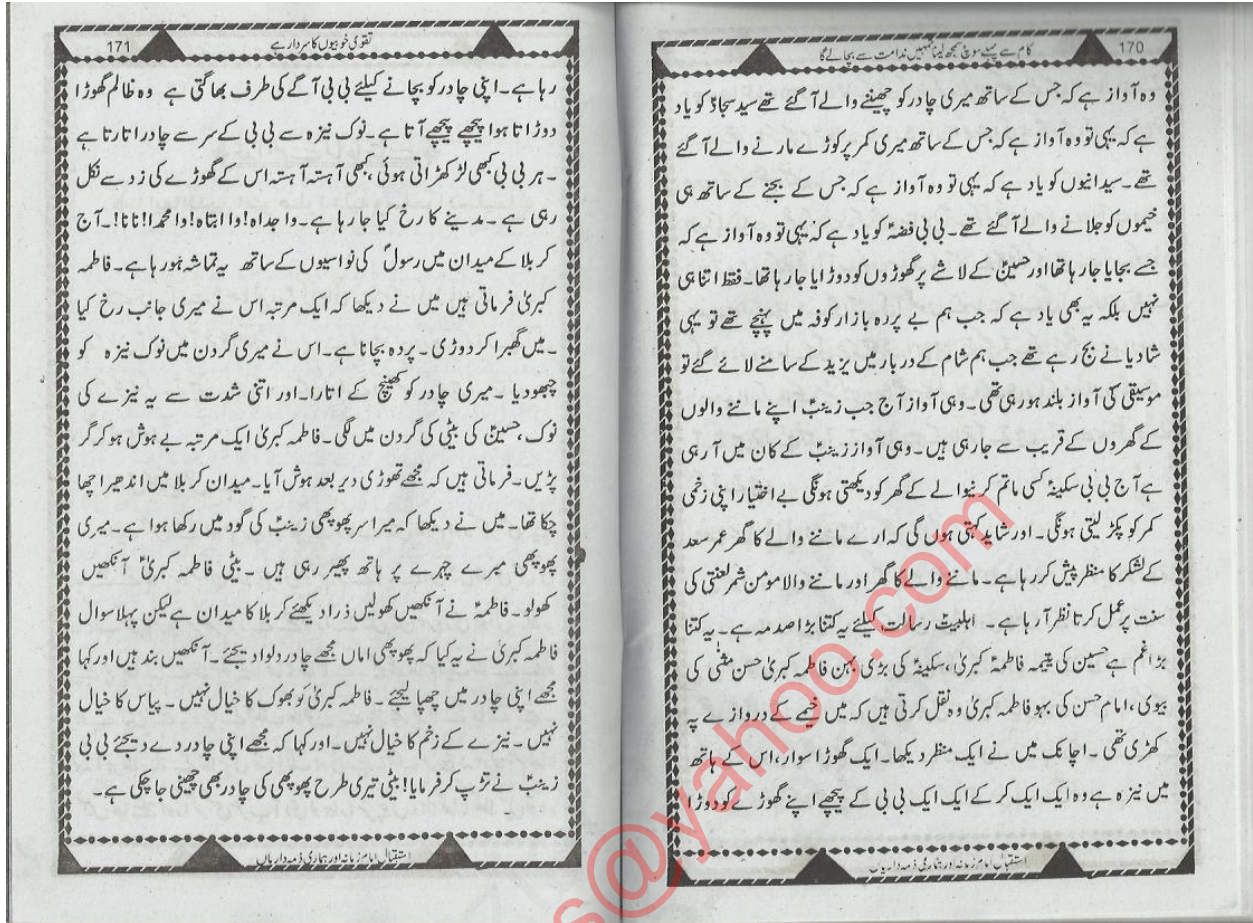 170
کام سے پہلے سوچ سمجھ لینا تمہیں ندامت سے بچالے گا
وہ آواز ہے کہ جس کے ساتھ میری چادر کو چھیننے والے آگئے تھے سید سجادؑ کو یاد
ہے کہ یہی تو وہ آواز ہے کہ جس کے ساتھ میری کمر پر کوڑے مارنے والے آگئے
تھے۔ سیدانیوں کو یاد ہے کہ یہی تو وہ آواز ہے کہ جس کے بجنے کے ساتھ ہی
خیموں کو جلانے والے آگئے تھے۔ بی بی فضہؑ کو یاد ہے کہ یہی تو وہ آواز ہے کہ
جسے بجایا جا رہا تھا اور حسینؑ کے لاشے پر گھوڑوں کو دوڑایا جا رہا تھا۔ فقط اتنا ہی
نہیں بلکہ یہ بھی یاد ہے کہ جب ہم بے پردہ بازار کوفہ میں پہنچے تھے تو یہی
شادیانے بج رہے تھے جب ہم شام کے دربار میں یزید کے سامنے لائے گئے تو
موسیقی کی آواز بلند ہو رہی تھی۔ وہی آواز آج جب زینبؑ اپنے ماننے والوں
کے گھروں کے قریب سے جارہی ہیں۔ وہی آواز زینبؑ کے کان میں آ رہی
ہے آج بی بی سکینہؑ کسی ماتم کرنیوالے کے گھر کو دیکھتی ہونگی بے اختیار اپنی زخمی
کمر کو پکڑ لیتی ہونگی۔ اور شاید کہتی ہوں گی کہ ارے ماننے والے کا گھر عمر سعد
کے لشکر کا منظر پیش کر رہا ہے۔ ماننے والے کا گھر اور ماننے والا مومن شمر لعنتی کی
سنت پر عمل کرتا نظر آرہا ہے۔ اہلبیتؑ رسالت کیلئے یہ کتنا بڑا صدمہ ہے۔ یہ کتنا
بڑا غم ہے حسین کی یتیمہ فاطمہؑ کبریٰ، سکینہؑ کی بڑی بہن فاطمہ کبریٰ حسن مثنیٰ کی
بیوی، امام حسن کی بہو فاطمہ کبریٰ وہ نقل کرتی ہیں کہ میں خیمے کے دروازے پہ
کھڑی تھی۔ اچانک میں نے ایک منظر دیکھا۔ ایک گھوڑا سوار، اس کے ہاتھ
میں نیزہ ہے وہ ایک ایک کر کے ایک ایک بی بی کے پیچھے اپنے گھوڑے کو دوڑا
استقبال امام زمانہ اور ہماری ذمہ داریاں
171
تقویٰ خوبیوں کا سردار ہے
رہا ہے۔ اپنی چادر کو بچانے کیلئے بی بی آگے کی طرف بھاگتی ہے وہ ظالم گھوڑا
دوڑاتا ہوا پیچھے پیچھے آتا ہے۔ نوک نیزہ سے بی بی کے سر سے چادر اتارتا ہے
۔ ہر بی بی کبھی لڑکھڑاتی ہوئی، کبھی آہستہ آہستہ اس کے گھوڑے کی زد سے نکل
رہی ہے۔ مدینے کا رخ کیا جا رہا ہے۔ وا جداہ! وا ابتاہ! وا محمدا! نانا!۔ آج
کربلا کے میدان میں رسولؐ کی نواسیوں کے ساتھ یہ تماشہ ہو رہا ہے۔ فاطمہ
کبریٰ فرماتی ہیں میں نے دیکھا کہ ایک مرتبہ اس نے میری جانب رخ کیا
۔ میں گھبرا کر دوڑی۔ پردہ بچانا ہے۔ اس نے میری گردن میں نوک نیزہ کو
چبھودیا ۔ میری چادر کو کھینچ کے اتارا۔ اور اتنی شدت سے یہ نیزے کی
نوک، حسینؑ کی بیٹی کی گردن میں لگی۔ فاطمہ کبریٰ ایک مرتبہ بے ہوش ہو کر گر
پڑیں۔ فرماتی ہیں کہ مجھے تھوڑی دیر بعد ہوش آیا۔ میدان کربلا میں اندھیرا چھا
چکا تھا۔ میں نے دیکھا کہ میرا سر پھوپھی زینبؑ کی گود میں رکھا ہوا ہے۔ میری
پھوپھی میرے چہرے پر ہاتھ پھیر رہی ہیں ۔ بیٹی فاطمہ کبریٰؑ آنکھیں
کھولو۔ فاطمہؑ نے آنکھیں کھولیں ذرا دیکھئے کربلا کا میدان ہے لیکن پہلا سوال
فاطمہ کبریٰ نے یہ کیا کہ پھوپھی اماں مجھے چادر دلوا دیجئے۔ آنکھیں بند ہیں اور کہا
مجھے اپنی چادر میں چھپا لیجئے۔ فاطمہ کبریٰ کو بھوک کا خیال نہیں۔ پیاس کا خیال
نہیں۔ نیزے کے زخم کا خیال نہیں۔ اور کہا کہ مجھے اپنی چادر دے دیجئے بی بی
زینبؑ نے تڑپ کر فرمایا! بیٹی تیری طرح پھوپھی کی چادر بھی چھینی جا چکی ہے۔
استقبال امام زمانہ اور ہماری ذمہ داریاں
s@yahoo.com